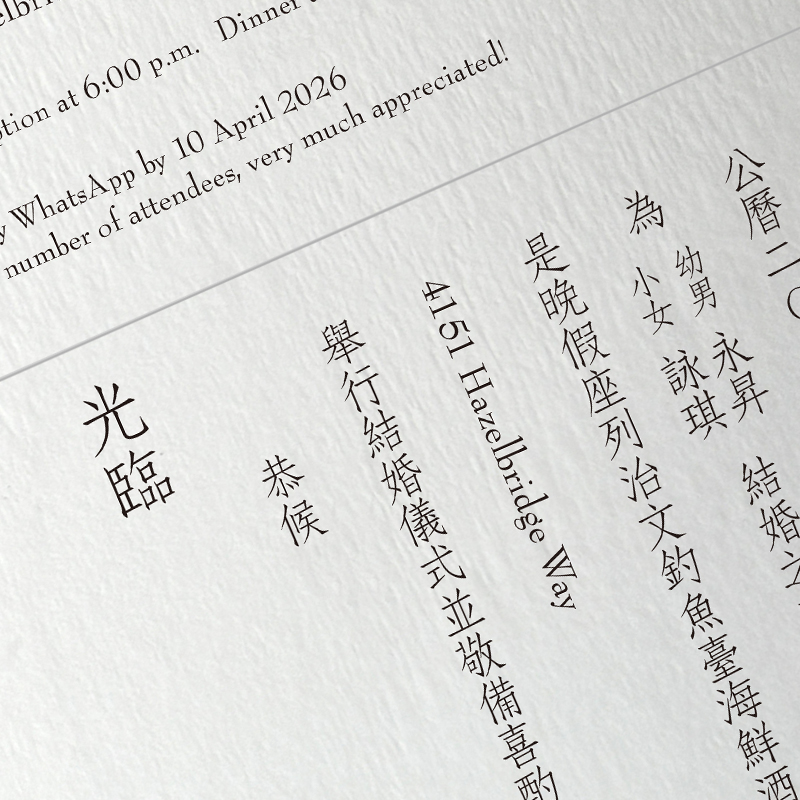 ption at 6:00 p.m. Dinner
y WhatsApp by 10 April 2026
number of attendees, very much appreciated!
公曆二〇
結婚之
為 幼男 永昇
小女 詠琪
是晚假座列治文釣魚臺海鮮酒
4151 Hazelbridge Way
舉行結婚儀式並敬備喜酌
恭候
光臨